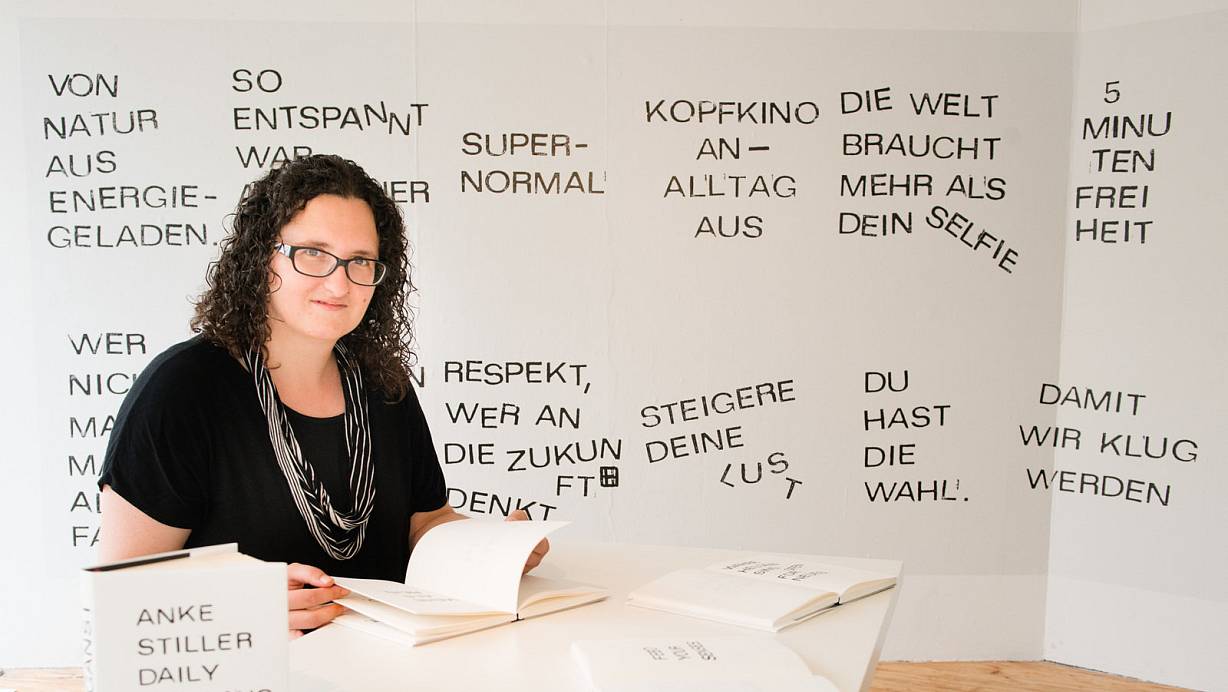 VON
NATUR
AUS
ENERGIE-
GELADEN.
SO
ENTSPANNT
WAR
SUPER-
NORMAL
KOPFKINO
AN—
ALLTAG
AUS
DIE WELT
BRAUCHT
MEHR ALS
DEIN SELFIE
5
MINU
TEN
FREI
HEIT
WER
RESPEKT,
WER AN
DIE ZUKUN
FT
DENKT
STEIGERE
DEINE
LUST
DU
HAST
DIE
WAHL.
DAMIT
WIR KLUG
WERDEN
ANKE
STILLER
DAILY